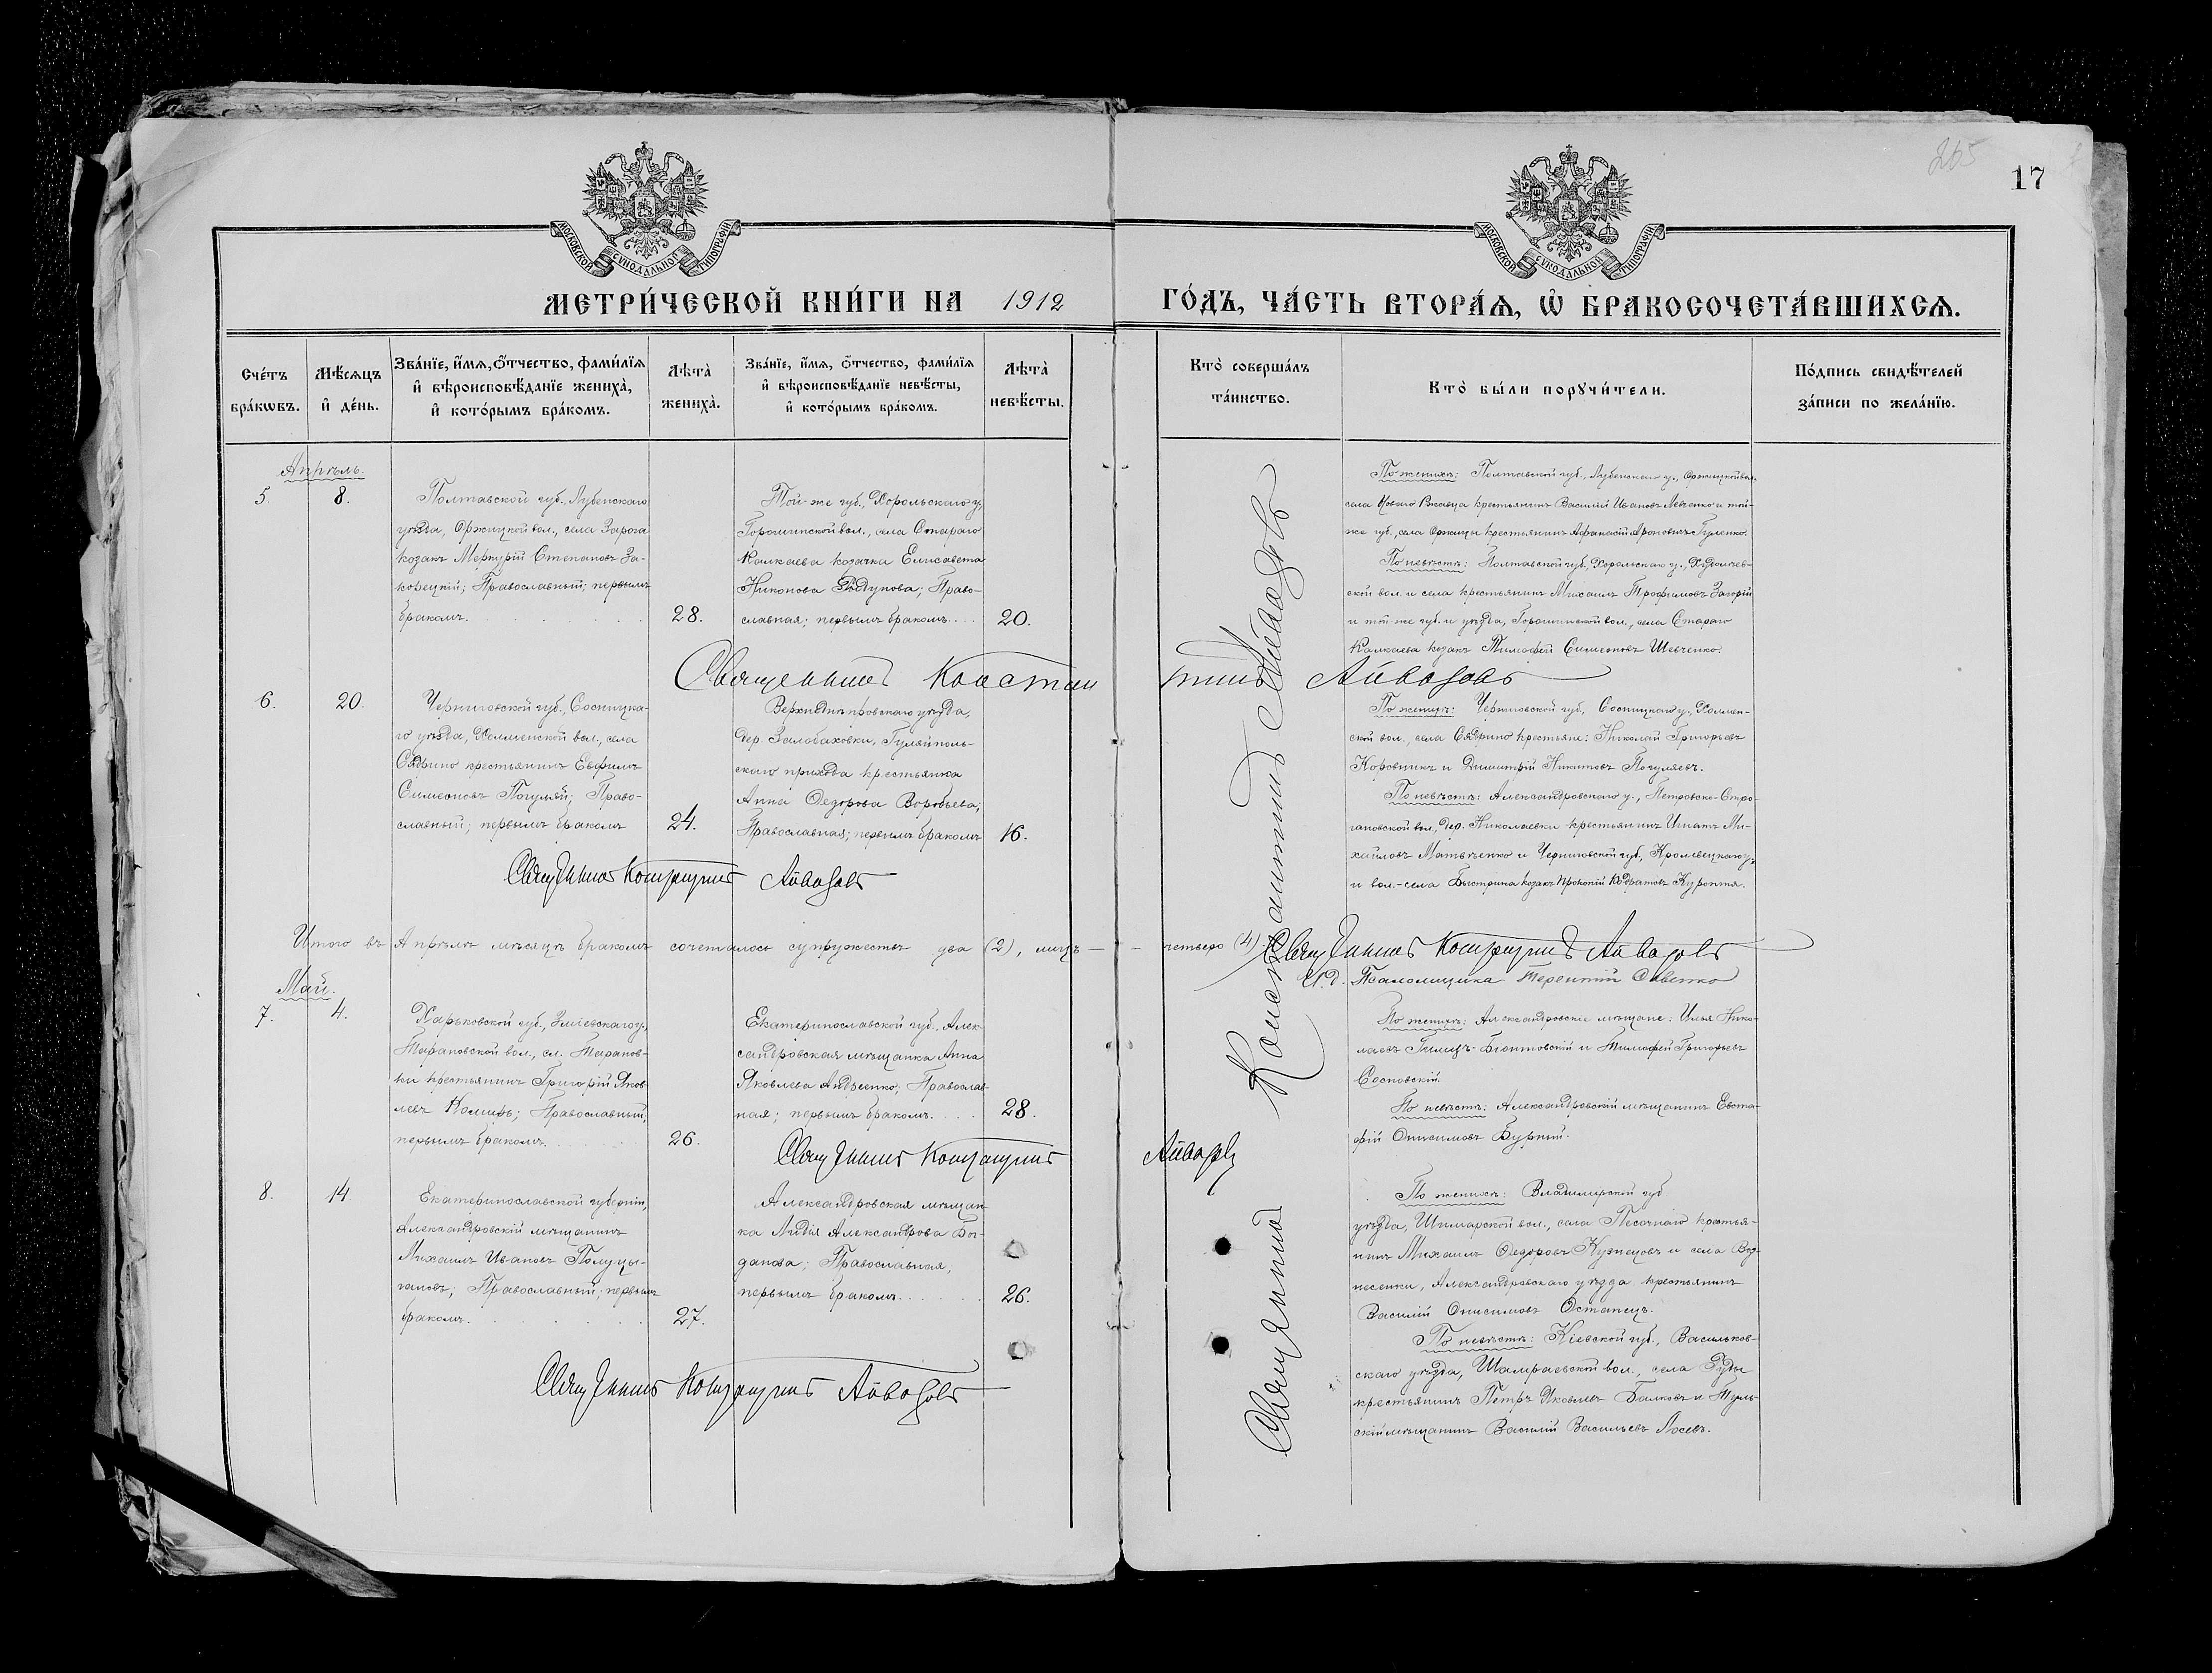 265
17
МОСКОВСКОЙ СѴНОДАЛЬНОЙ ТИПОГРАФІИ
МОСКОВСКОЙ СѴНОДАЛЬНОЙ ТИПОГРАФІИ
МЕТРИ́ЧЕСКОЙ КНИ́ГИ НА 1912 ГО́ДЪ, ЧА́СТЬ ВТОРА́Ѧ, Ѿ БРАКОСОЧЕТА́ВШИХСѦ.
Сче́тъ бра́кѡвъ.
Мѣ́сѧцъ и҆ де́нь.
Зва́нїе, и҆́мѧ, ѻ҆́тчество, фами́лїѧ
и҆ вѣроисповѣ́данїе жениха̀,
и҆ кото́рымъ бра́комъ.
Лѣта̀ жениха̀.
Зва́нїе, и҆́мѧ, ѻ҆́тчество, фами́лїѧ
и҆ вѣроисповѣ́данїе невѣ́сты,
и҆ кото́рымъ бра́комъ.
Лѣта̀ невѣ́сты.
Кто̀ соверша́лъ
та́инство.
Кто̀ бы́ли порꙋчи́тели.
По́дпись свидѣ́телей
за́писи по жела́нїю.
Апрѣль.
5.
8.
Полтавской губ., Лубенскаго
уѣзда, Оржицкой вол., села Зарога
козакъ Меркурій Степановъ За-
ковецкій; Православный; первымъ
бракомъ.
28.
Той-же губ., Хорольскаго у,
Горошинской вол., села Стараго
Калкаева козачка Елисавета
Никонова; Право-
славная; первымъ бракомъ....
20.
По женихѣ: Полтавской губ., Лубенскаго у., Оржицкой вол.
села Новаго крестьянинъ Василій Ивановъ Левченко и той-
же губ., села Оржицы крестьянинъ Афанасій Гуленко.
По невѣстѣ: Полтавской губ., Хорольскаго у.,
ской вол. и села крестьянинъ Михаилъ Трофимовъ Загорій
и той-же губ. и уѣзда, Горошинской вол., села Стараго
Калкаева козакъ Тимофей Симеоновъ Шевченко.
Священникъ Константинъ Айвазовъ
6.
20.
Черниговской губ., Сосницка-
го уѣзда, Холменской вол., села
Сядрино крестьянинъ Евфимъ
Симеоновъ Погуляй; Право-
славный; первымъ бракомъ
24.
Верхнеднѣпровскаго уѣзда,
дер. Залобаховки, Гуляйполь-
скаго прихода крестьянка
Анна Ѳедорова Воробьева;
Православная; первымъ бракомъ
16.
По женихѣ: Черниговской губ., Сосницкаго у., Холмен-
ской вол., села Сядрино крестьяне: Николай Григорьевъ
Коровникъ и Димитрій Никитовъ Погуляевъ.
По невѣстѣ: Александровскаго у., Петровско-Стро-
гановской вол., дер. Николаевки крестьянинъ Игнатъ Ми-
хайловъ Матвѣенко и Черниговской губ., Кролевецкаго у.
и вол.- села Быстрика козакъ Прокопій Кодратовъ Куропта.
Священникъ Константинъ Айвазовъ
Итого въ Апрѣлѣ мѣсяцѣ бракомъ сочеталось супружествъ два (2), лицъ — четверо (4). Священникъ Константинъ Айвазовъ
И.д. Псаломщика Терентій Савенко
Май.
7.
4.
Харьковской губ., Зміевскаго у.,
Тарановской вол., сл. Таранов-
ки крестьянинъ Григорій Яков-
левъ; Православный,
первымъ бракомъ.
26.
Екатеринославской губ., Алек-
сандровская мѣщанка Анна
Яковлева; Православ-
ная; первымъ бракомъ.
28.
По женихѣ: Александровскіе мѣщане: Илья Нико-
лаевъ и Тимофей Григорьевъ
Сосновскій.
По невѣстѣ: Александровскій мѣщанинъ Евста-
фій Онисимовъ Бурный.
Священникъ Константинъ Айвазовъ
8.
14.
Екатеринославской губерніи,
Александровскій мѣщанинъ
Михаилъ Ивановъ Полуцы-
гановъ; Православный; первымъ
бракомъ.
27.
Александровская мѣщан-
ка Лидія Александрова Бог-
данова; Православная,
первымъ бракомъ
26.
По женихѣ: Владимірской губ.
уѣзда, Шимарской вол., села Песочнаго крестья-
нинъ Михаилъ Ѳедоровъ Кузнецовъ и села Воз-
несенки, Александровскаго уѣзда крестьянинъ
Василій Онисимовъ Останецъ.
По невѣстѣ: Кіевской губ., Васильков-
скаго уѣзда, Шамраевской вол., села Руды
крестьянинъ Петръ Яковлевъ Балковъ и Туль-
скій мѣщанинъ Василій Васильевъ Лосевъ.
Священникъ Константинъ Айвазовъ
Священникъ Константинъ Айвазовъ